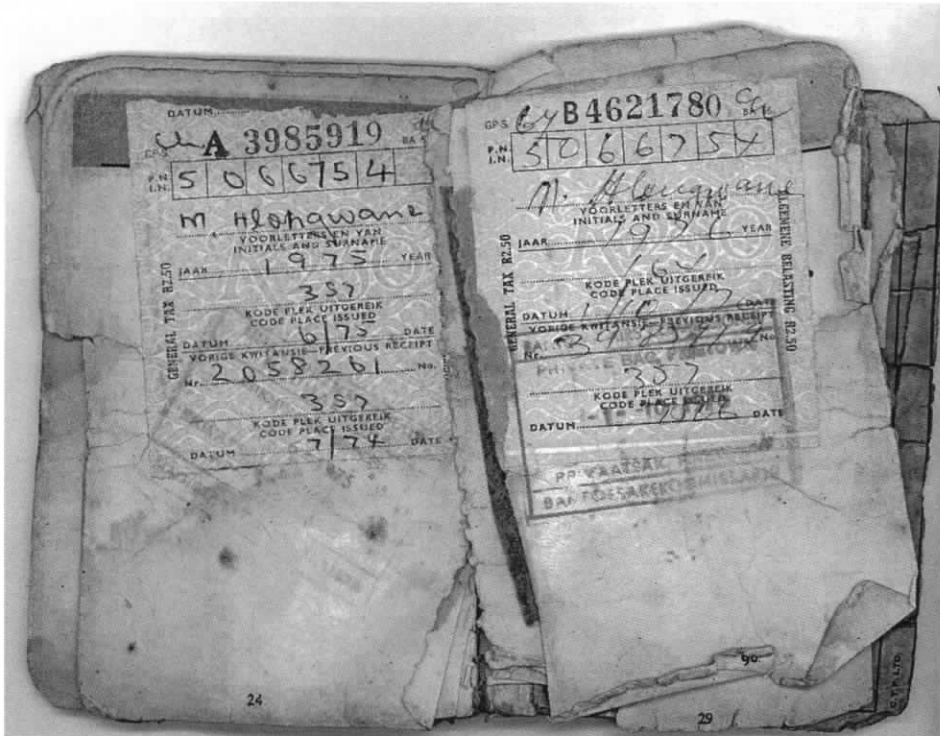 DATUM
G.P.S. A 3985919 BA
P.N.
I.N. 5066754
M. Hlopawane
VOORLETTERS EN VAN
INITIALS AND SURNAME
JAAR 1975 YEAR
357
KODE PLEK UITGEREIK
CODE PLACE ISSUED
DATUM 6/75 DATE
VORIGE KWITANSIE—PREVIOUS RECEIPT
Nr. 2058261 No.
357
KODE PLEK UITGEREIK
CODE PLACE ISSUED
DATUM 7/74 DATE
GENERAL TAX R2.50
24
G.P.S. B4621780 BA
P.N.
I.N. 506675
M. Hlongwane
VOORLETTERS EN VAN
INITIALS AND SURNAME
JAAR 1976 YEAR
KODE PLEK UITGEREIK
CODE PLACE ISSUED
DATUM DATE
VORIGE KWITANSIE—PREVIOUS RECEIPT
Nr. No.
PRIVATE BAG
357
KODE PLEK UITGEREIK
CODE PLACE ISSUED
DATUM DATE
GENERAL TAX R2.50
ALGEMENE BELASTING R2.50
BANTOESAKEKOMMISSARIS
90
29